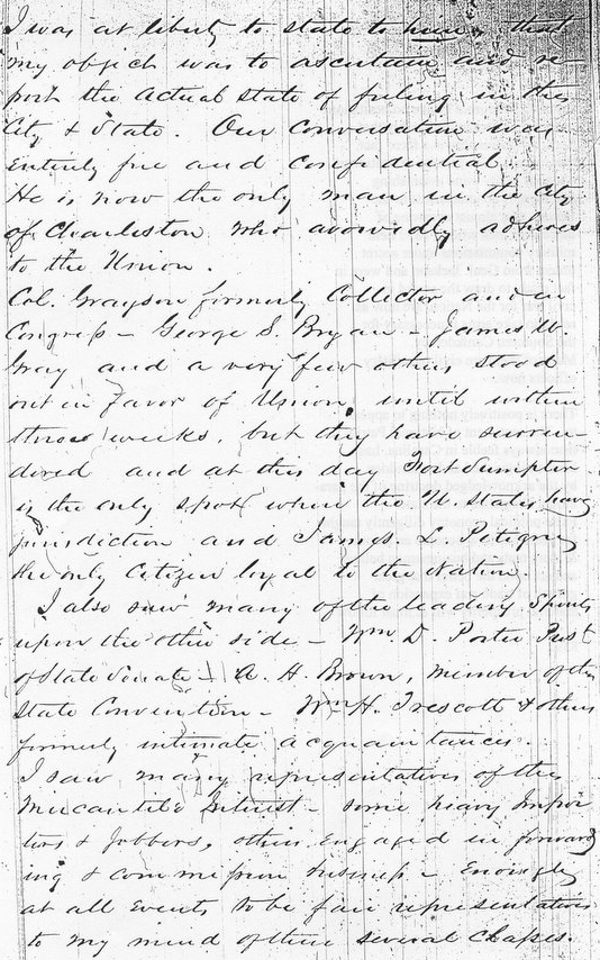 I was at liberty to state to him, that
my object was to ascertain and re-
port the actual state of feeling in the
City & State. Our Conversation was
entirely free and confidential.
He is now the only man in the City
of Charleston who avowedly adheres
to the Union.
Col. Grayson formerly Collector and in
Congress - George S. Bryan - James W.
Gray and a very few others stood
out in favor of Union until within
three weeks, but they have surren-
dered and at this day Fort Sumpter
is the only spot where the U. States have
jurisdiction and James. L. Petigru
the only Citizen loyal to the Nation.
I also saw many of the leading Spirits
upon the other side - Wm. D. Porter Prest
of State Senate - A. H. Brown, member of the
State Convention - Wm H. Trescott & others
formerly intimate acquaintances.
I saw many representatives of the
Mercantile Interest - some heavy Impor
ters & Jobbers, others engaged in forward
ing & commission business - Enough
at all events to be fair representatives
to my mind of their several classes.